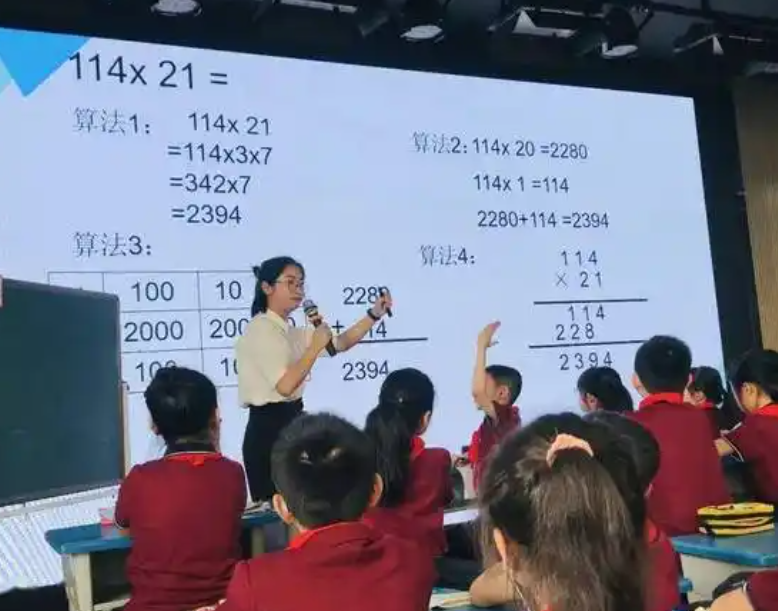 114x 21 =
算法1： 114x 21
=114x3x7
=342x7
=2394
算法2：114x 20 =2280
114x 1 =114
2280+114 =2394
算法3：
100 10
2000 200
2394
算法4：
114
× 21
114
228
2394